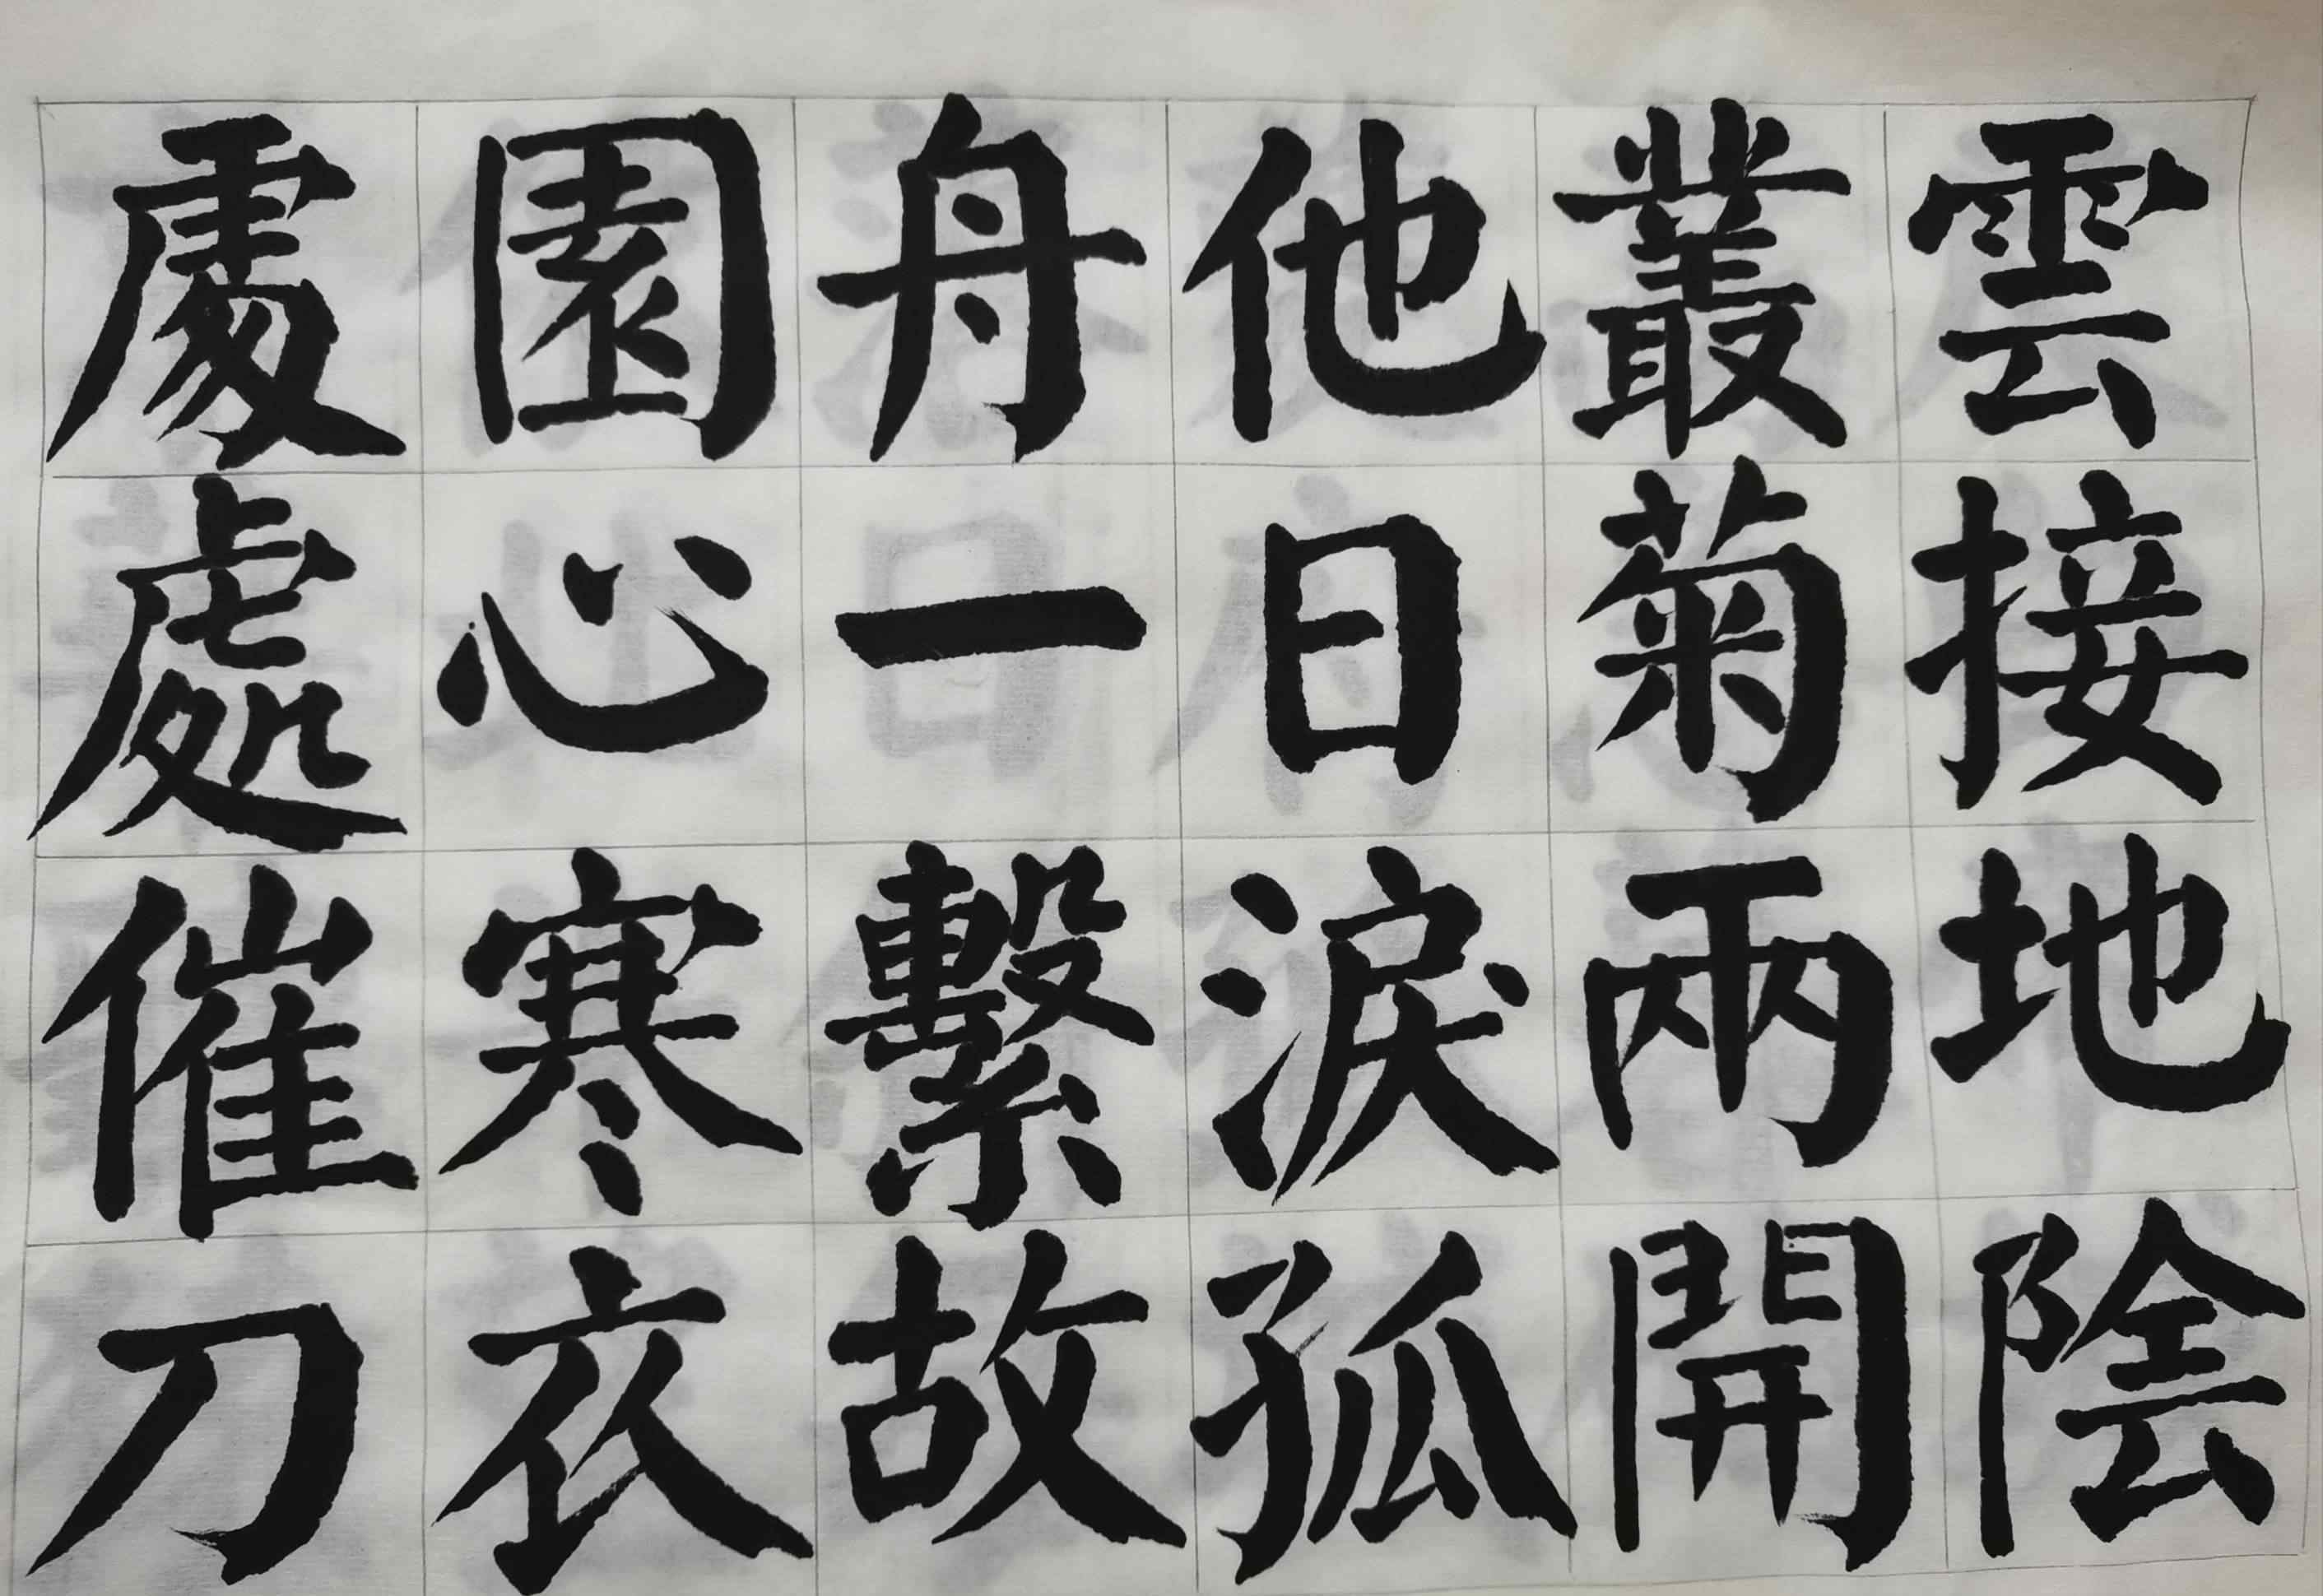 雲接地陰
叢菊兩開
他日淚孤
舟一繫故
園心寒衣
處處催刀